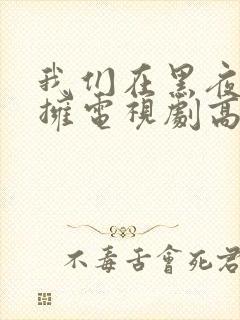 我们在黑夜
擁電視劇高
不毒舌會死君